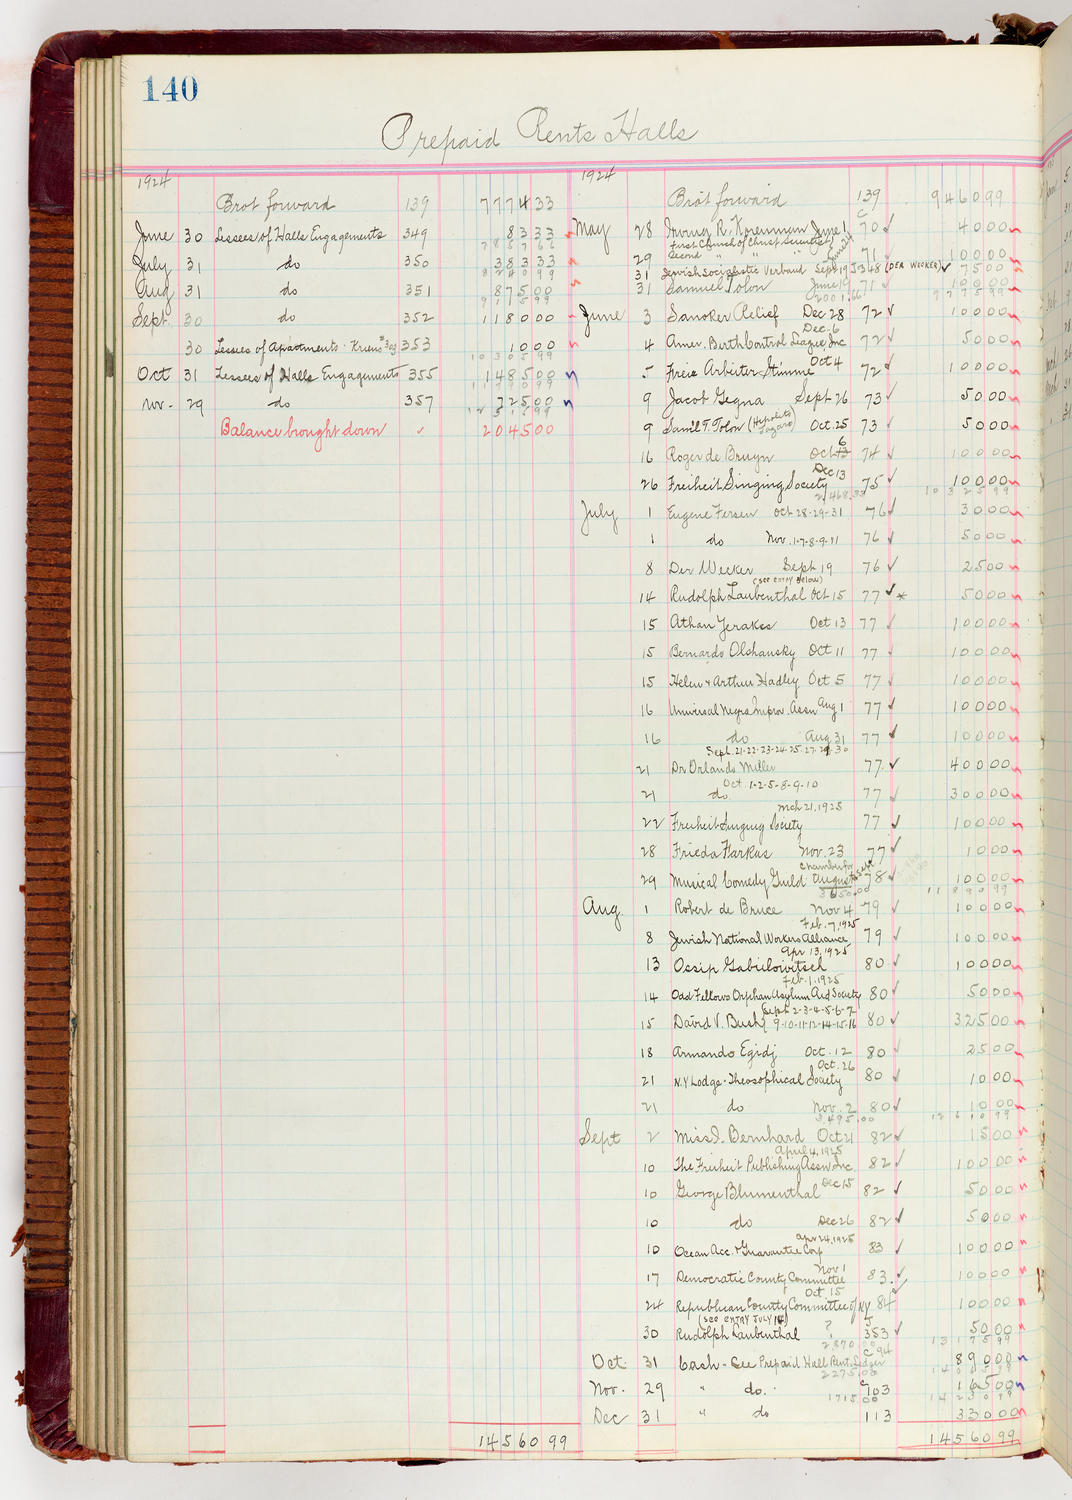 140
Prepaid Rents Halls
1924
Brot forward 139 7774 33
June 30 Lessees of Halls Engagements 349 83 33
7857 66
July 31 do 350 383 33
8240 99
Aug 31 do 351 875 00
9115 99
Sept. 30 do 352 1180 00
30 Lessees of Apartments - Kriens 353 10 00
10305 99
Oct 31 Lessees of Halls Engagements 355 1485 00
11790 99
Nov. 29 do 357 725 00
12515 99
Balance brought down ✓ 2045 00
14560 99
1924
Brot forward 139 9460 99
May 28 Irving R. Korenman June 1 C 70 ✓ 40 00
First Church of Christ Scientist
29 Second " " " 71 ✓ 100 00
31 Jewish Socialistic Verband Sept 19 J348 (DER WECKER) ✓ 75 00
31 Samuel Tolon June 19 71 ✓ 100 00
2001.66 9775 99
June 3 Sanoker Relief Dec 28 72 ✓ 100 00
Dec. 6
4 Amer. Birth Control League Inc 72 ✓ 50 00
5 Freie Arbeiter Stimme Oct 4 72 ✓ 100 00
9 Jacob Gegna Sept 26 73 ✓ 50 00
9 Saml T. Tolon (Hipolito Lazaro) Oct. 25 73 ✓ 50 00
6
16 Roger de Bruyn Oct 13 74 ✓ 100 00
Dec 13
26 Freiheit Singing Society 75 ✓ 100 00
2468.33 10325 99
July 1 Eugene Fersen Oct 28-29-31 76 ✓ 30 00
1 do Nov. 1-7-8-9-11 76 ✓ 50 00
8 Der Wecker Sept 19 76 ✓ 25 00
(see entry below)
14 Rudolph Laubenthal Oct 15 77 ✓ * 50 00
15 Athan Yerakes Oct 13 77 ✓ 100 00
15 Bernardo Olshansky Oct 11 77 ✓ 100 00
15 Helen & Arthur Hadley Oct 5 77 ✓ 100 00
16 Universal Negro Improv. Assn Aug 1 77 ✓ 100 00
16 do Aug 31 77 ✓ 100 00
Sept. 21-22-23-24-25-27-28-30
21 Dr Orlando Miller 77 ✓ 400 00
Oct. 1-2-5-8-9-10
21 do 77 ✓ 300 00
Mch 21, 1925
22 Freiheit Singing Society 77 ✓ 100 00
28 Frieda Farkas Nov. 23 77 ✓ 10 00
Chamber for
29 Musical Comedy Guild August & Sept 78 ✓ 100 00
3650.00 11890 99
Aug. 1 Robert de Bruce Nov 4 79 ✓ 100 00
Feb. 7, 1925
8 Jewish National Workers Alliance 79 ✓ 100 00
Apr 13, 1925
13 Ossip Gabrilowitsch 80 ✓ 100 00
Feb. 1, 1925
14 Odd Fellows Orphan Asylum Aid Society 80 ✓ 50 00
Sept 2-3-4-5-6-7
15 David V. Bush 9-10-11-12-14-15-16 80 ✓ 325 00
18 Armando Egidj Oct. 12 80 ✓ 25 00
Oct. 26
21 N.Y Lodge - Theosophical Society 80 ✓ 10 00
21 do Nov. 2 80 ✓ 10 00
3495.00 12610 99
Sept 2 Miss I. Bernhard Oct 21 82 ✓ 15 00
April 4, 1925
10 The Freiheit Publishing Assn Inc. 82 ✓ 100 00
10 George Blumenthal Dec 15 82 ✓ 50 00
10 do Dec 26 82 ✓ 50 00
Apr 24, 1925
10 Ocean Acc. & Guarantee Corp 83 ✓ 100 00
Nov 1
17 Democratic County Committee 83. ✓ 100 00
Oct 15
24 Republican County Committee of NY 84 ✓ 100 00
(see ENTRY JULY 14)
30 Rudolph Laubenthal ? J 353 ✓ 50 00
2870 00 13175 99
Oct. 31 Cash - See Prepaid Hall Rent Ledger C 94 890 00
2275.00 14065 99
Nov. 29 " do. C 103 165 00
1715 00 14230 99
Dec 31 " do 113 330 00
14560 99